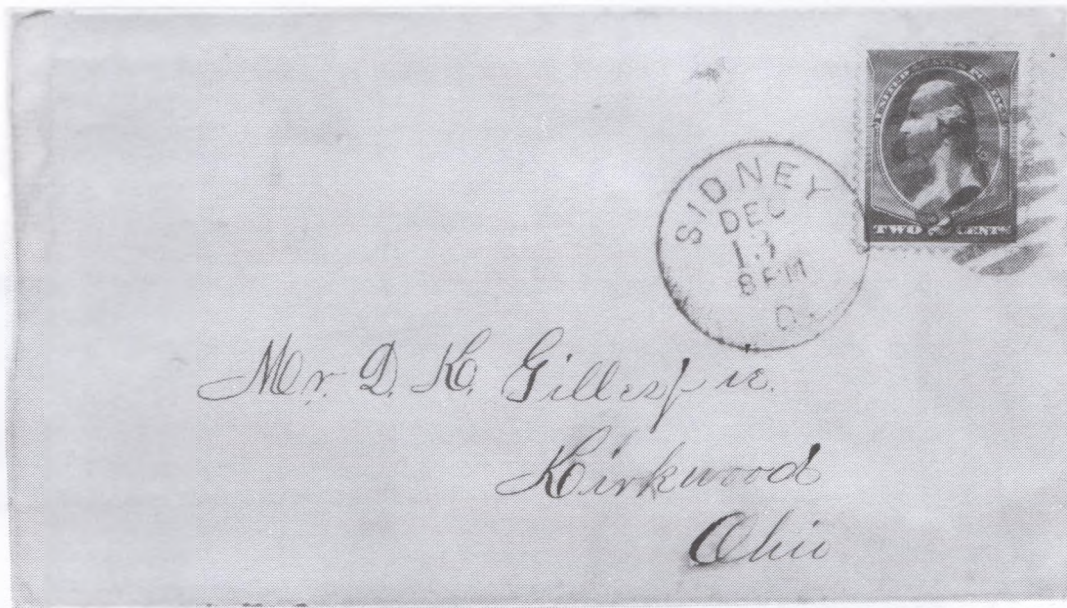 UNITED STATES POSTAGE
TWO CENTS
SIDNEY
DEC
13
8 PM
O.
Mr. D. K. Gillespie.
Kirkwood
Ohio